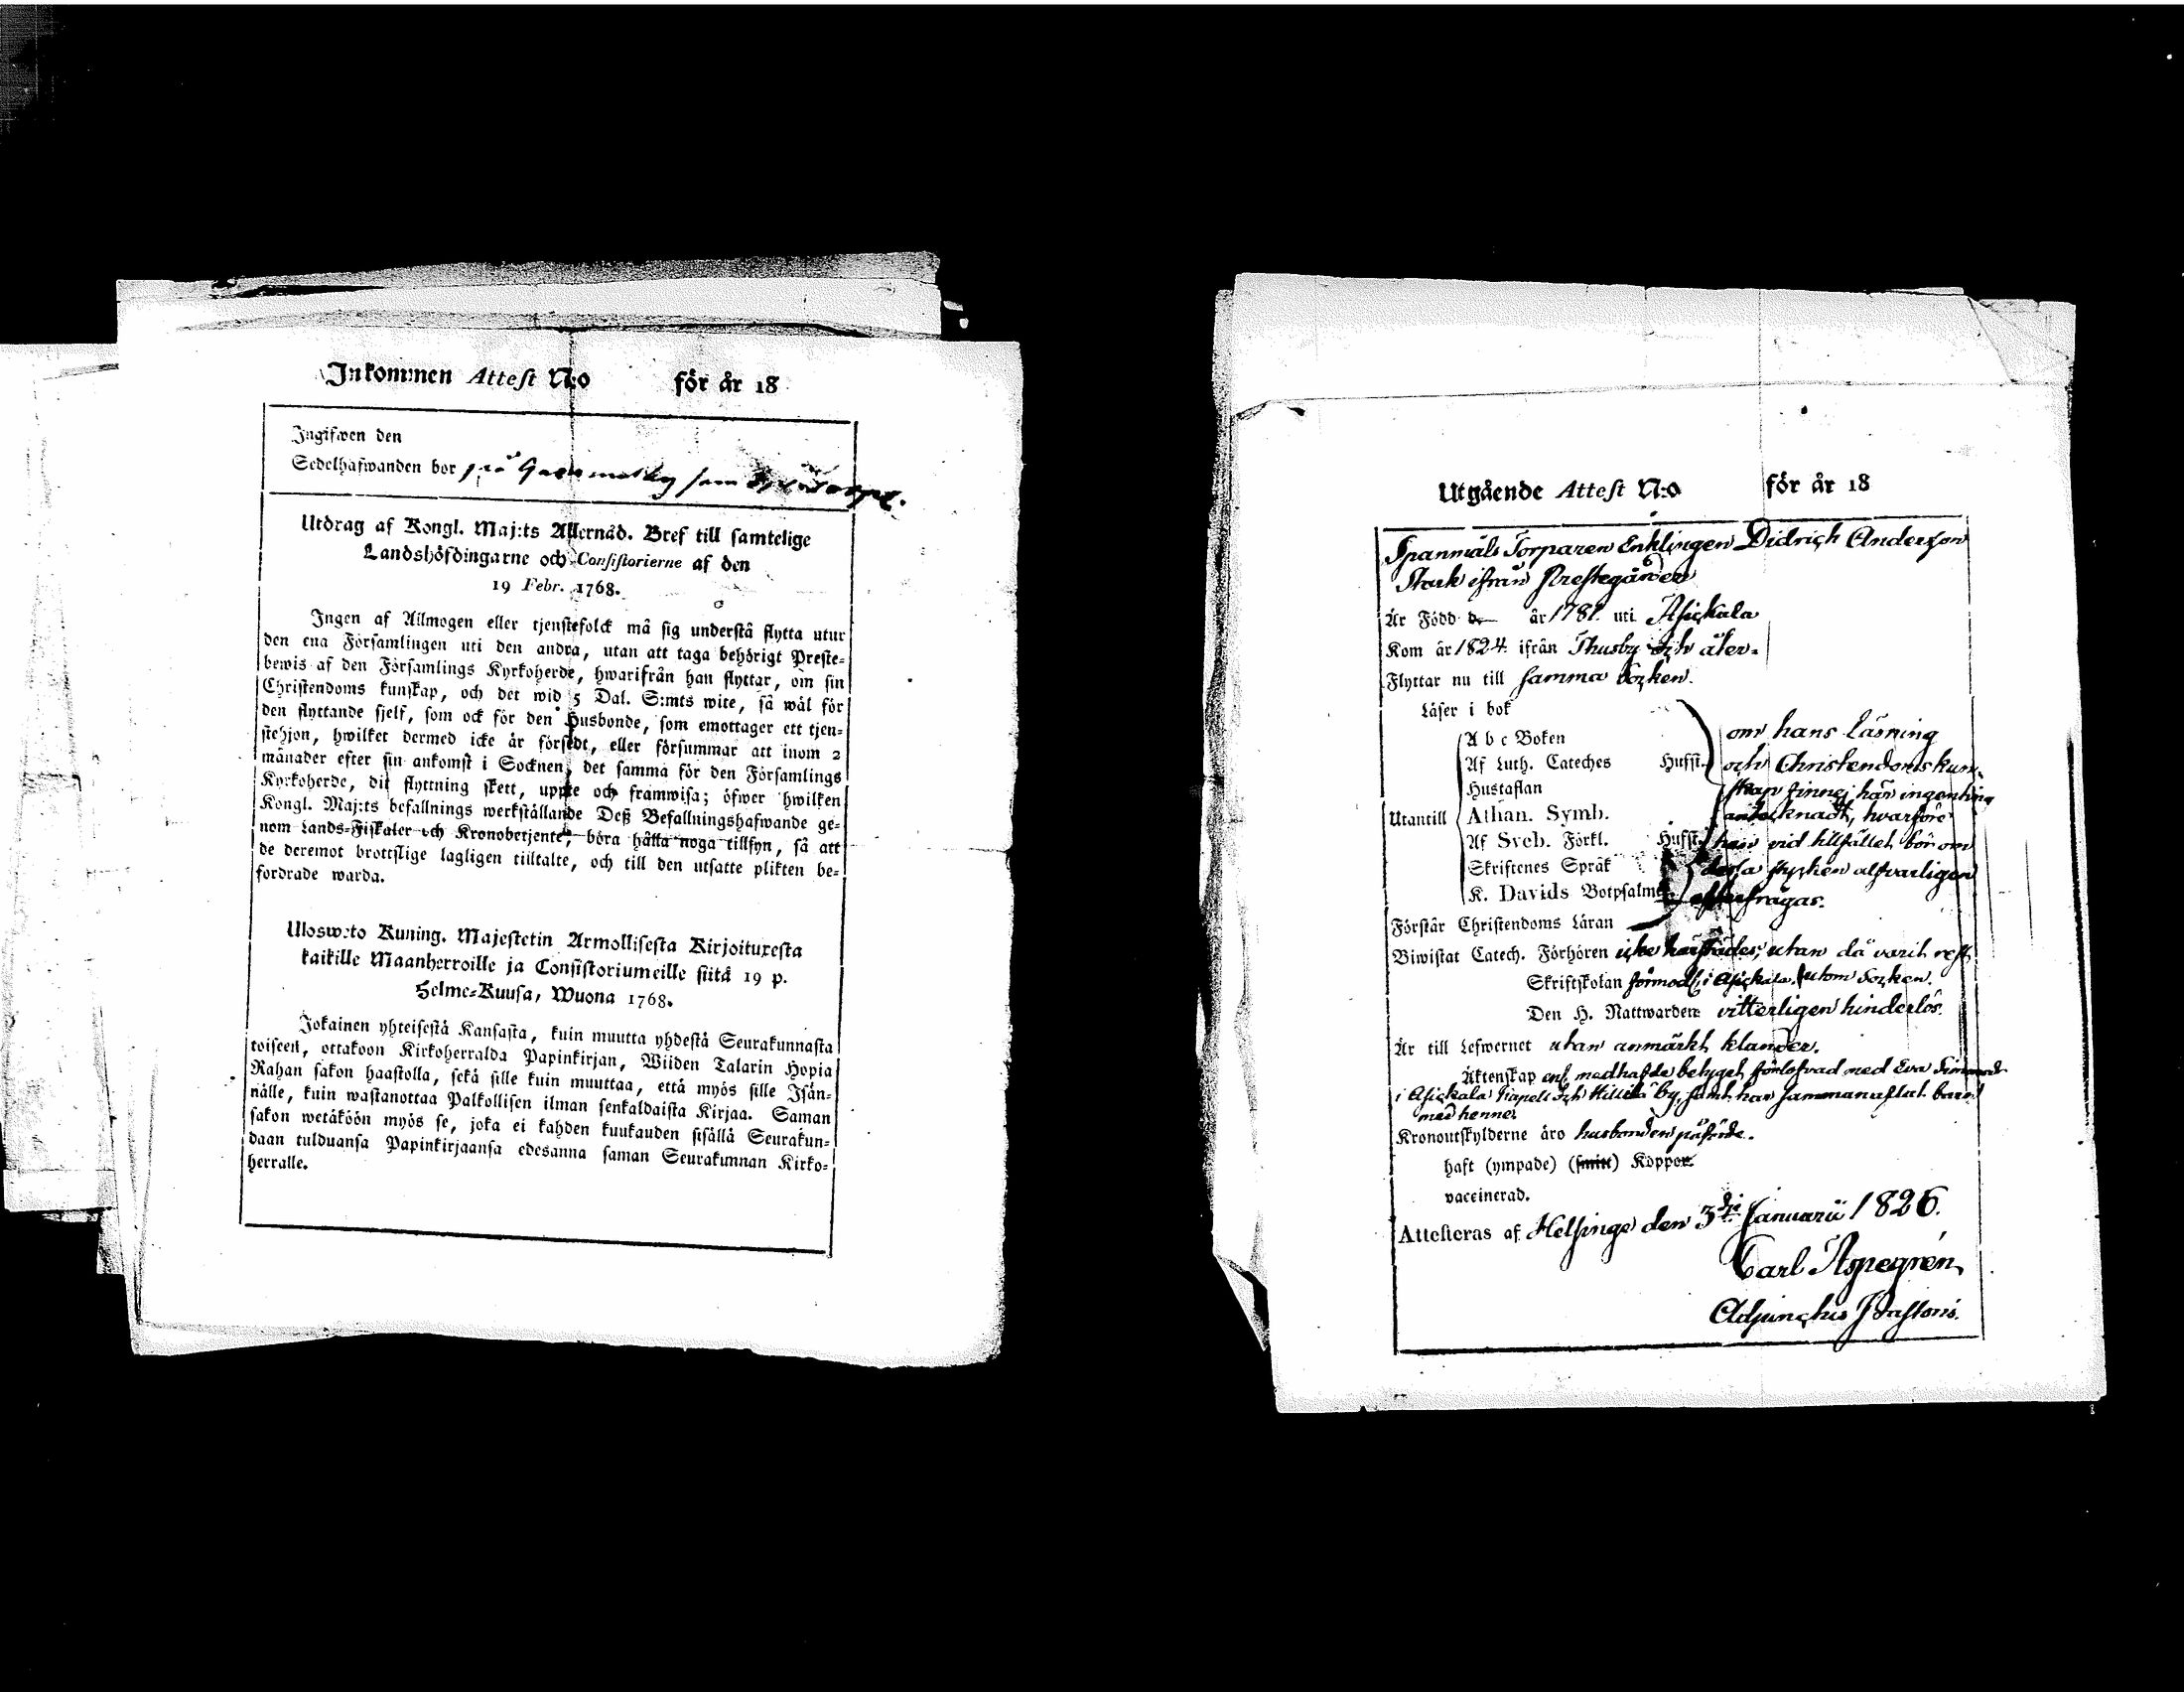 Inkommen Attest N:o för år 18
Ingifwen den
Sedelhafwanden bor på som
Utdrag af Kongl. Maj:ts Allernåd. Bref till samtelige
Landshöfdingarne och Consistorierne af den
19 Febr. 1768.
Ingen af Allmogen eller tjenstefolck må sig understå flytta utur
den ena Församlingen uti den andra, utan att taga behörigt Preste-
bewis af den Församlings Kyrkoherde, hwarifrån han flyttar, om sin
Christendoms kunskap, och det wid 5 Dal. S:mts wite, så wäl för
den flyttande sjelf, som ock för den Husbonde, som emottager ett tjen-
stehjon, hwilket dermed icke är försedt, eller försummar att inom 2
månader efter sin ankomst i Socknen, det samma för den Församlings
Kyrkoherde, dit flyttning skett, uppte och framwisa; öfwer hwilken
Kongl. Maj:ts befallnings werkställande Deß Befallningshafwande ge-
nom Lands-Fiskaler och Kronobetjente, böra hålla noga tillsyn, så att
de deremot brottslige lagligen tiltalte, och till den utsatte plikten be-
fordrade warda.
Ulosweto Kuning. Majestetin Armollisesta Kirjoituxesta
kaikille Maanherroille ja Consistoriumeille siitä 19 p.
Helme-Kuusa, Wuona 1768.
Jokainen yhteisestä Kansasta, kuin muutta yhdestä Seurakunnasta
toiseen, ottakoon Kirkoherralda Papinkirjan, Wiiden Talarin Hopia
Rahan sakon haastolla, sekä sille kuin muuttaa, että myös sille Isän-
nälle, kuin wastanottaa Palkollisen ilman senkaldaista Kirjaa. Saman
sakon wetäköön myös se, joka ei kahden kuukauden sisällä Seurakun-
daan tulduansa Papinkirjaansa edesanna saman Seurakunnan Kirko-
herralle.
Utgående Attest N:o för år 18
Spanmåls Torparen Enklingen Didrich Andersson
Stark ifrån Prestegården
Är Född d. år 1781. uti Asickala
Kom år 1824 ifrån Thusby och åter-
Flyttar nu till samma Socken.
Läser i bok
A b c Boken
om hans läsning
Af Luth. Cateches Hufst.
och Christendoms kun-
Hustaflan
skap finnes här ingenting
Utantill Athan. Symb.
antecknadt, hvarföre
Af Sveb. Förkl. Hufst.
han vid tillfället bör om
Skriftenes Språk
dessa stycken alfvarligen
K. Davids Botpsalmer
efterfrågas.
Förstår Christendoms Läran
Biwistat Catech. Förhören icke härstädes, utan då varit rest
Skriftskolan förmodl. i Asickala. utom Socken.
Den H. Nattwarden vitterligen hinderlös.
Är till Lefwernet utan anmärkt klander.
Äktenskap enl. medhafde betyget förlofvad med Eva
i Asickala Capell och by, samt har sammanaflat barn
med henne.
Kronoutskylderne äro husbonden påförde.
haft (ympade) (smitt) Koppor.
vaccinerad.
Attesteras af Helsinge den 3:dje Januarii 1826.
Carl Aspegrén,
Adjunctus Pastoris.